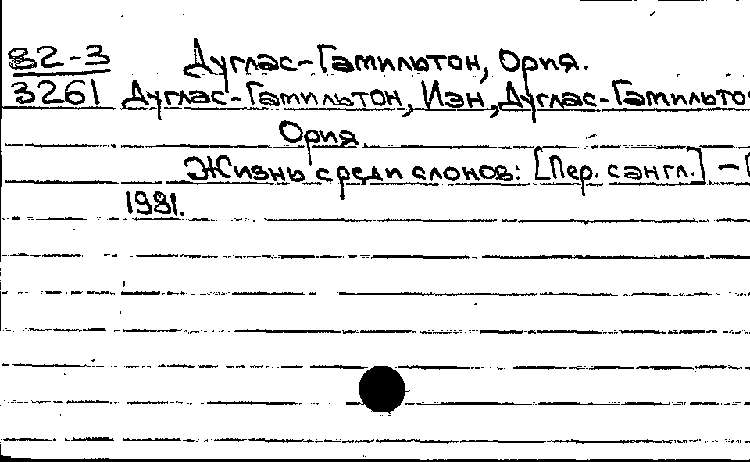 82-3 Дуглас-Гамильтон, Ория.
3261 Дуглас-Гамильтон, Иэн, Дуглас-Гамильто
Ория.
Жизнь среди слонов: [Пер. с англ.] –
1981.